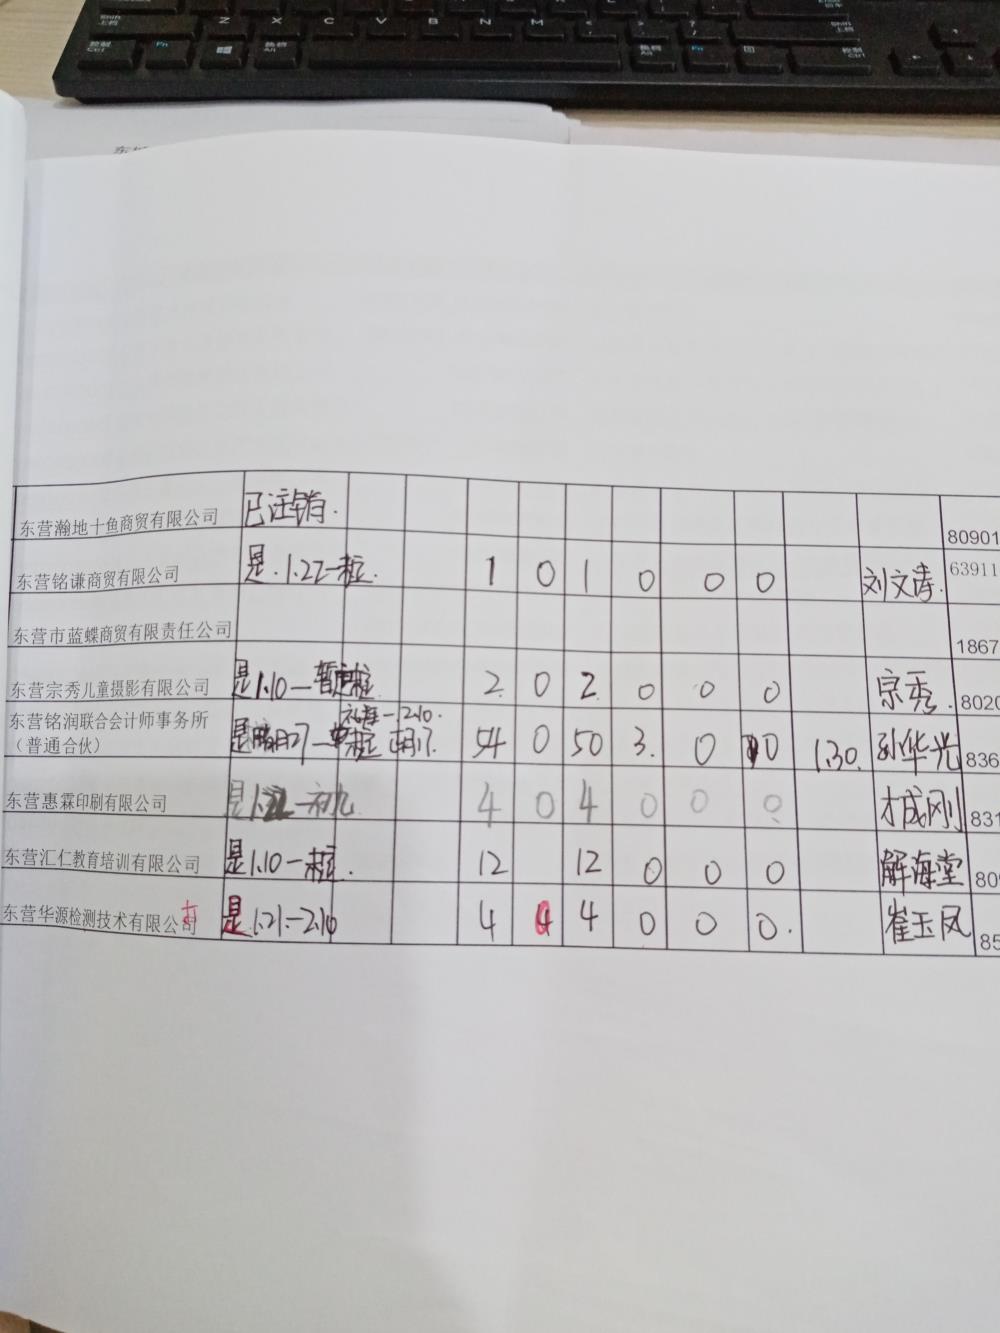 Shift
上档
Z X C V B N M
Shift
上档
控制
Ctrl
Fn
换档
Alt
换档
Alt
Fn
控制
Ctrl
东营瀚地十鱼商贸有限公司 已注销. 80901
东营铭谦商贸有限公司 是.1.22一 1 0 1 0 0 0 刘文涛. 63911
东营市蓝蝶商贸有限责任公司 1867
东营宗秀儿童摄影有限公司 是1.10一暂 2 0 2 0 0 0 宗秀. 8020
东营铭润联合会计师事务所
（普通合伙） 是 54 0 50 3. 0 0 1.30. 孙华光 836
东营惠霖印刷有限公司 是 一初九 4 0 4 0 0 0 才成刚 831
东营汇仁教育培训有限公司 是1.10一 12 12 0 0 0 解海堂 809
东营华源检测技术有限公司 是1.21一2.10 4 4 4 0 0 0. 崔玉凤 85